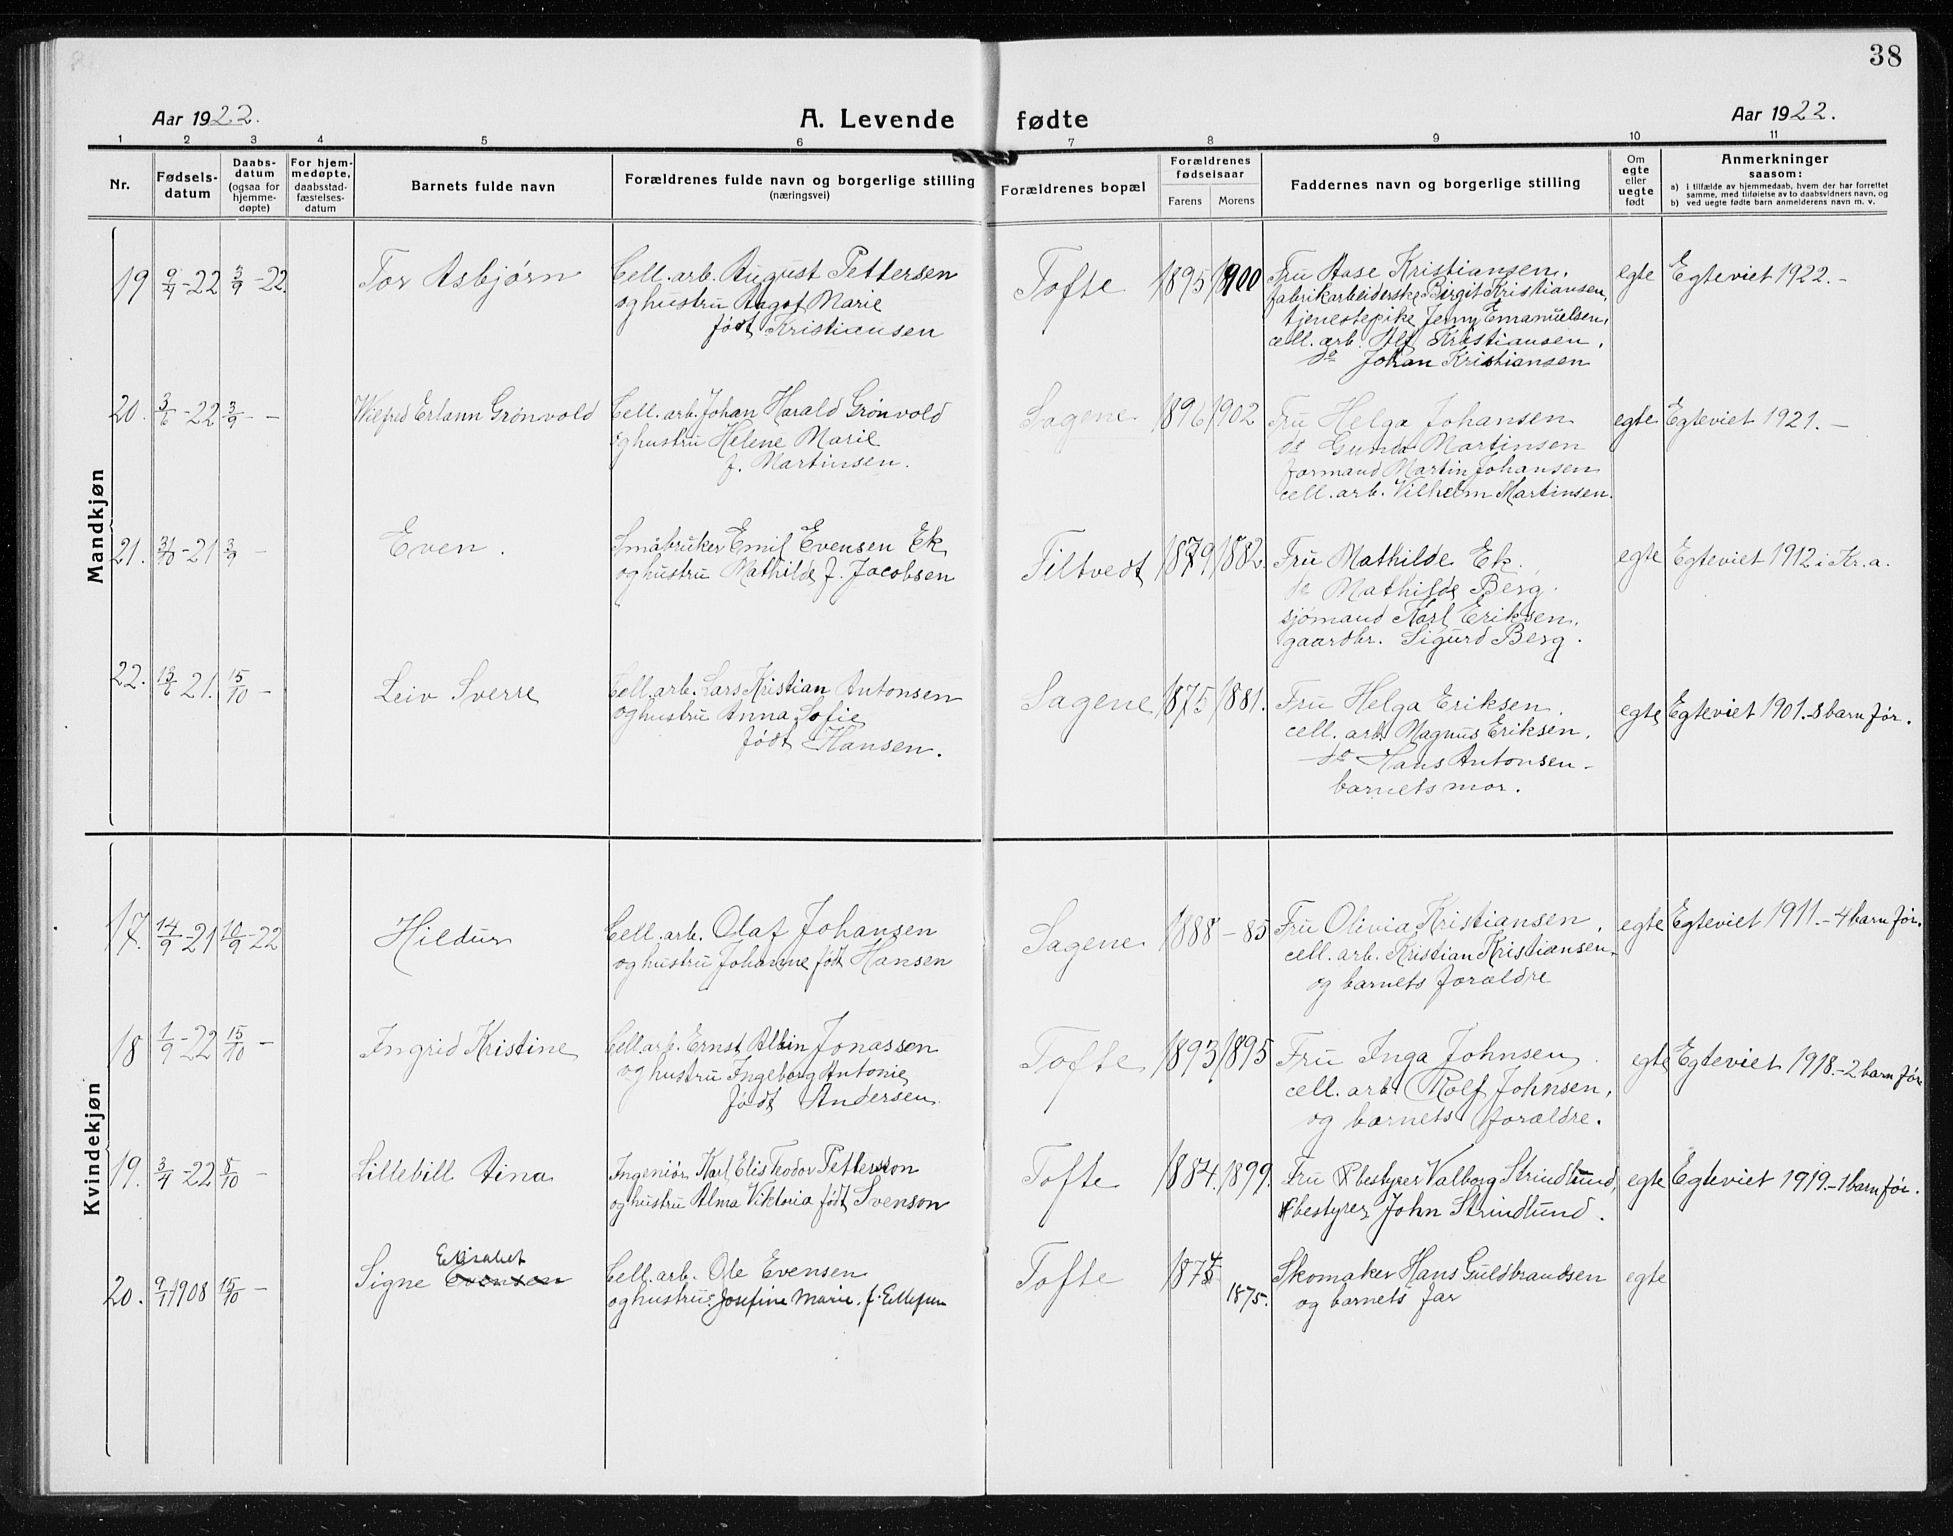 38
Aar 1922.
A. Levende fødte
Aar 1922.
1 2 3 4 5 6 7 8 9 10 11
Nr.
Fødsels-
datum
Daabs-
datum
(ogsaa for
hjemme-
døpte)
For hjem-
medøpte,
daabsstad-
fæstelses-
datum
Barnets fulde navn
Forældrenes fulde navn og borgerlige stilling
(næringsvei)
Forældrenes bopæl
Forældrenes
fødselsaar
Farens Morens
Faddernes navn og borgerlige stilling
Om
egte
eller
uegte
født
Anmerkninger
saasom:
a) i tilfælde av hjemmedaab, hvem der har forrettet
samme, med tilføielse av to daabsvidners navn, og
b) ved uegte fødte barn anmelderens navn m. v.
Mandkjøn
19 9/7-22 3/9-22. Tor Asbjørn
Cell. arb. August Pettersen
og hustru Aagot Marie
født Kristiansen
Tofte 1895 1900
Fru Aase Kristiansen.
fabrikarbeiderske Birgit Kristiansen,
tjenestepike Jenny Emanuelsen,
cell. arb. Alf Kristiansen,
do Johan Kristiansen
egte Egteviet 1922.-
20. 3/6-22 3/9 - Wilfred Erlann Grönvold
Cell. arb. Johan Harald Grönvold
og hustru Helene Marie
f. Martinsen.
Sagene 1896 1902
Fru Helga Johansen
do Gunda Martinsen
formand Martin Johansen
cell. arb. Vilhelm Martinsen.
egte Egteviet 1921.-
21. 31/10-21 3/9 - Even.
Småbruker Emil Evensen Ek
og hustru Mathilde f. Jacobsen
Tiltvedt 1879 1882.
Fru Mathilde Ek.
do Mathilde Berg.
sjømand Karl Eriksen,
gaardbr. Sigurd Berg.
egte Egteviet 1912 i Kr.a.
22. 13/6 21. 15/10 - Leiv Sverre
Cell. arb. Lars Kristian Antonsen
og hustru Anna Sofie
født Hansen.
Sagene 1875 1881.
Fru Helga Eriksen.
cell. arb. Magnus Eriksen,
do Hans Antonsen -
barnets mor.
egte Egteviet 1901.-8 barn før.
Kvindekjøn
17. 14/9-21 10/9-22 Hildur
Cell. arb. Olaf Johansen
og hustru Johanne født Hansen
Sagene 1888 - 85
Fru Olivia Kristiansen,
cell. arb. Kristian Kristiansen,
og barnets forældre
egte Egteviet 1911.-4 barn før.
18 1/9-22 15/10 - Ingrid Kristine
Cell. arb. Ernst Albin Jonassen
og hustru Ingeborg Antonie
født Andersen.
Tofte 1893 1895
Fru Inga Johnsen.
cell. arb. Rolf Johnsen,
og barnets forældre.
egte Egteviet 1918.-2 barn før
19. 3/4-22 8/10 - Lillebill Aina
Ingeniør Karl Elis Teodor Petterson
og hustru Alma Viktoria født Svenson
Tofte 1884. 1899.
Fru bestyrer Valborg Strindlund,
bestyrer John Strindlund.
egte Egteviet 1919.-1 barn før.
20. 9/11 1908 15/10 - Signe Evensen Elisabet
Cell. arb. Ole Evensen
og hustru: Josefine Marie. f. Ellefsen
Tofte 1874 1875.
Skomaker Hans Guldbrandsen
og barnets far
egte